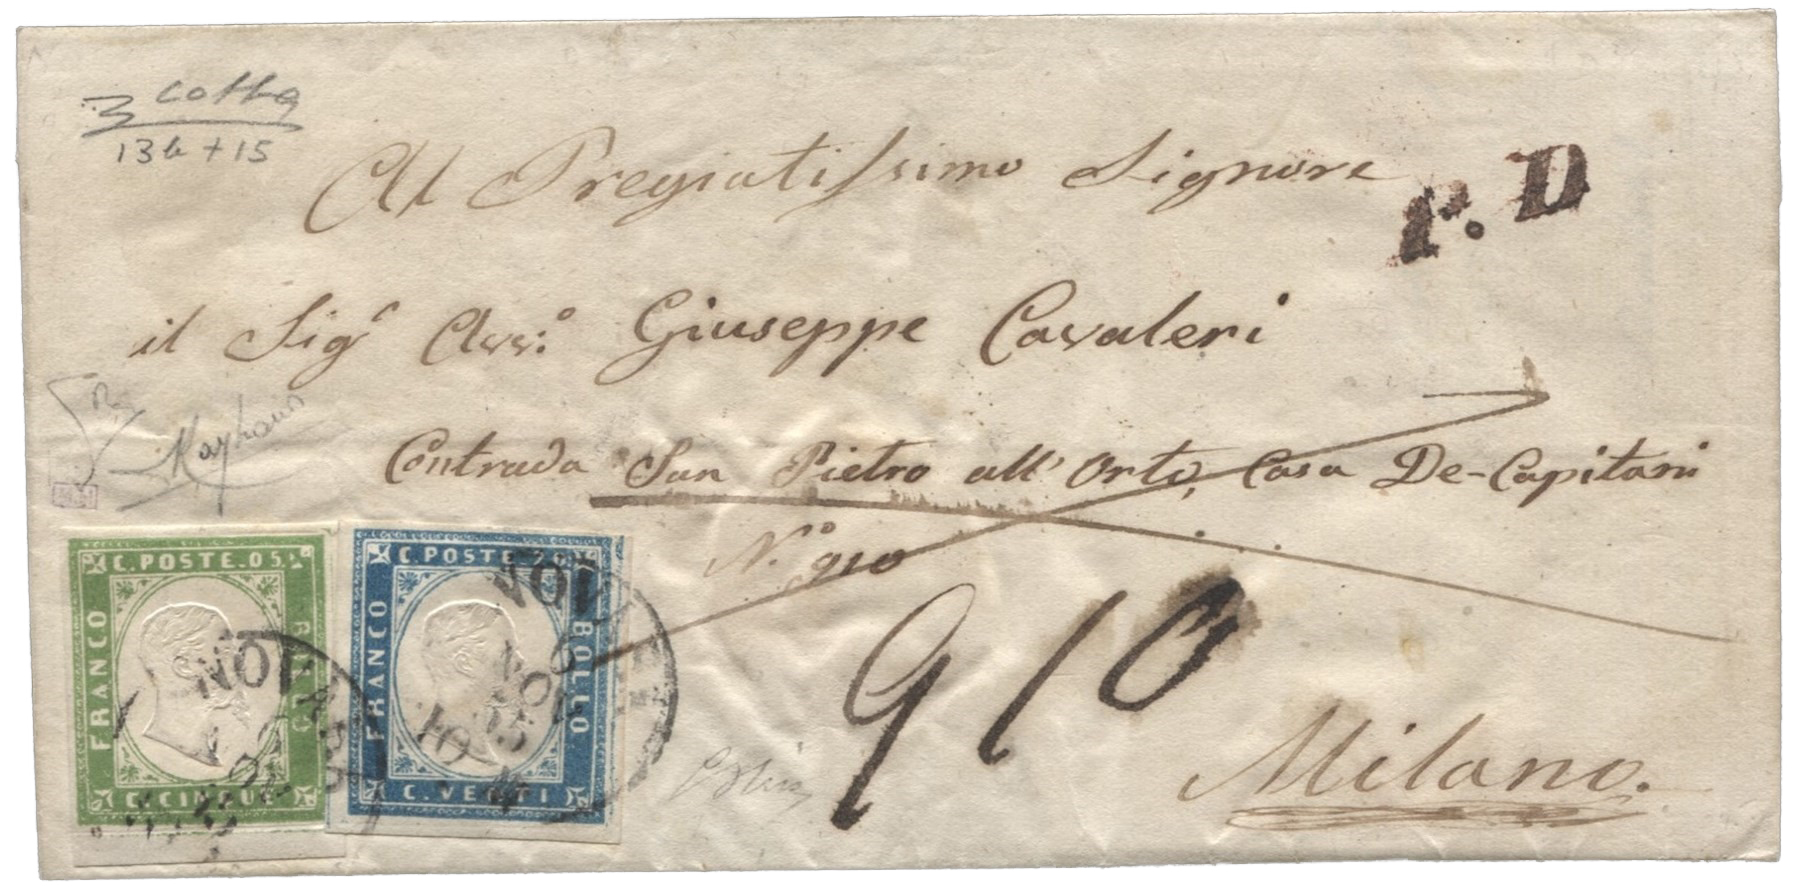 cotta
13b + 15
Al Pregiatissimo Signore
P. D
il Sigr Avv.o Giuseppe Cavaleri
Contrada San Pietro all'Orto, Casa De-Capitani
N.o 910
910
Milano.
C. POSTE. 05.
FRANCO
BOLLO
C. CINQUE
C. POSTE. 20.
FRANCO
BOLLO
C. VENTI
NOVARA
NOVARA
6
NOV
10 M